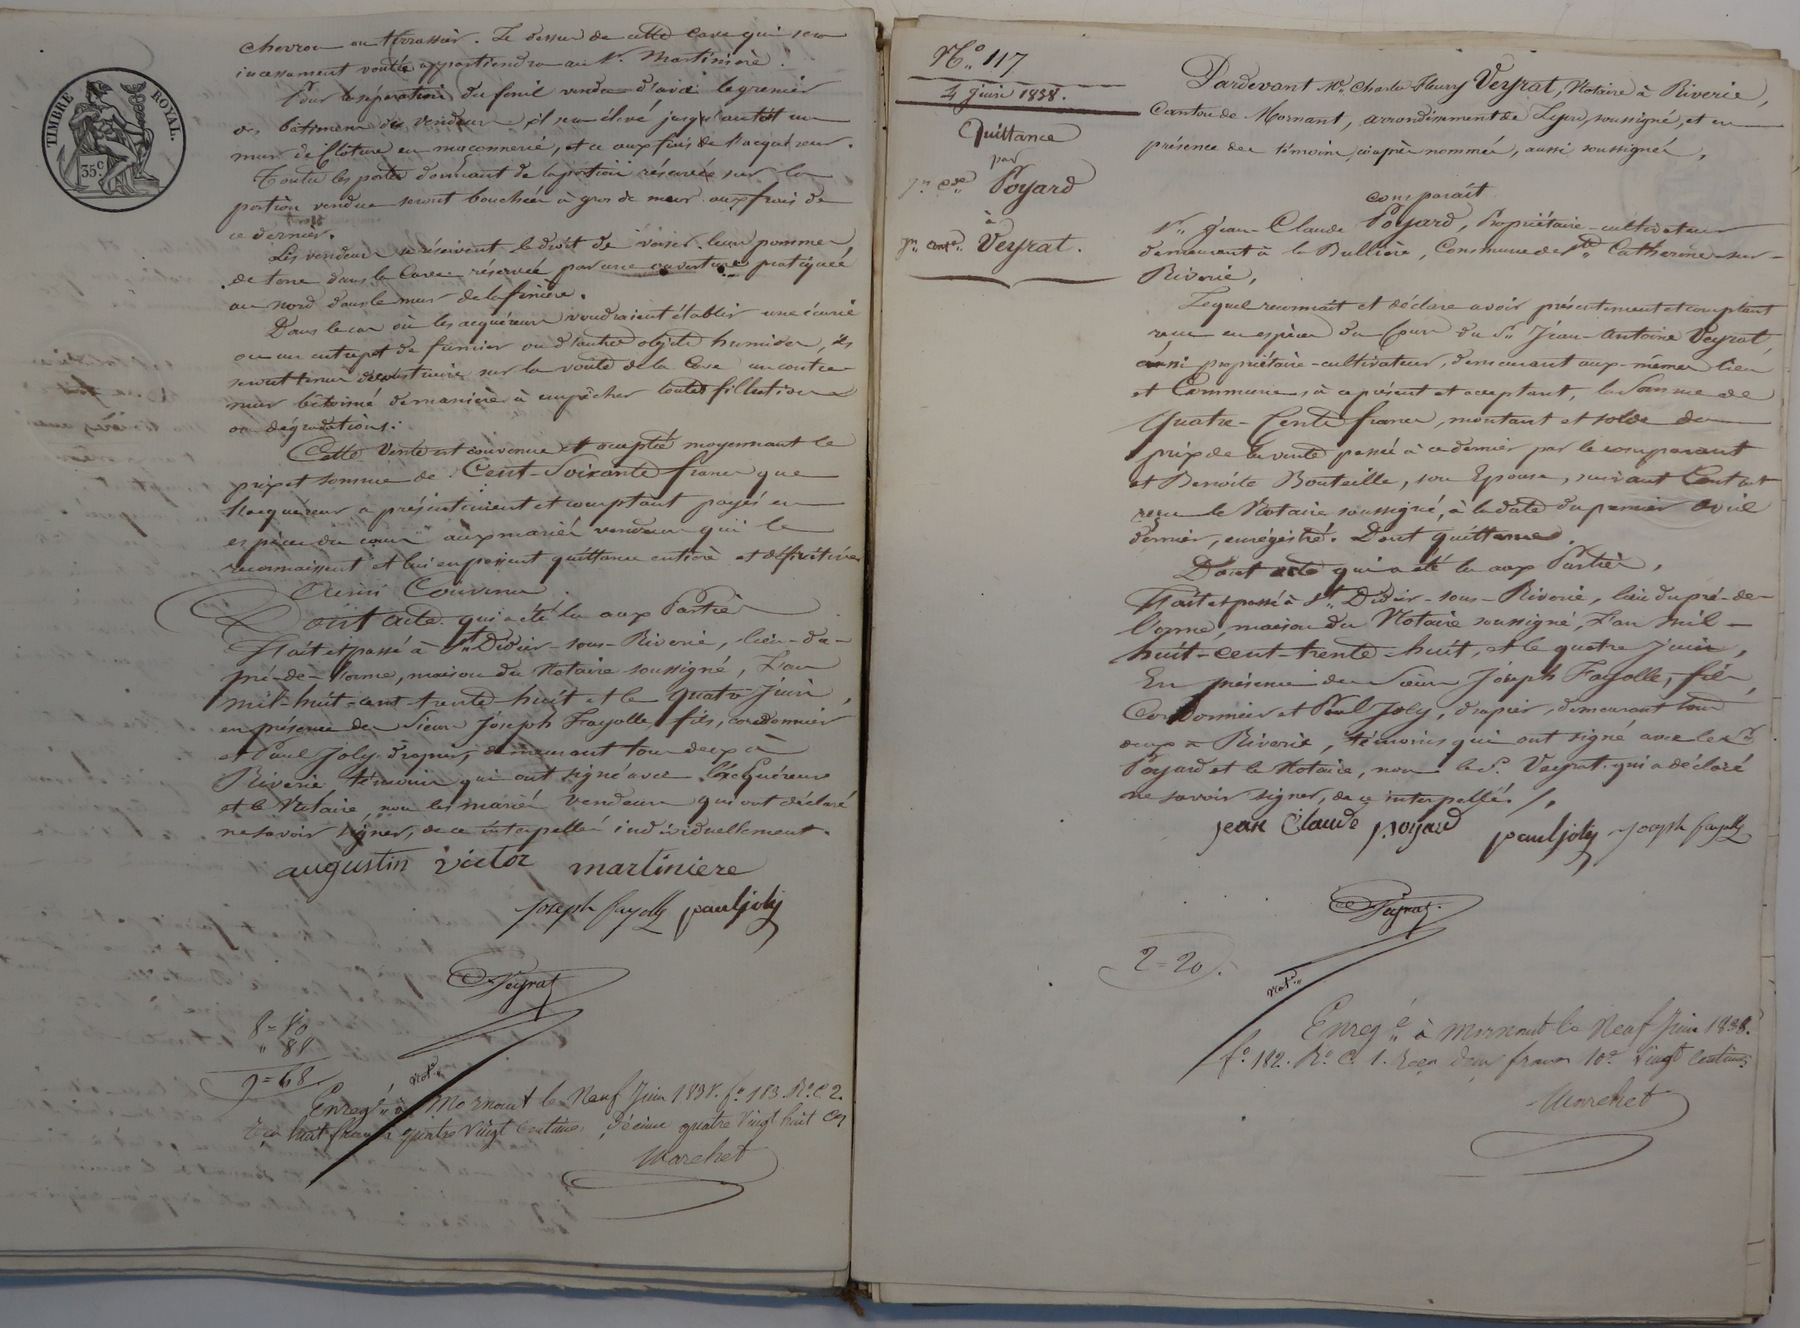 TIMBRE ROYAL.
35.c
chevron ou terrassier. Le dessus de cette cave qui sera
incessament voutée appartiendra au Sr. Martinière.
Pour la séparation du fenil vendu d'avec le grenier
des bâtiments des vendeurs, il sera élevé jusqu'au toît un
mur de clôture en maçonnerie, et ce aux frais de l'acquéreur.
Toutes les portes donnant de la portion réservée sur la
portion vendue seront bouchées à gros de mur aux frais de
ce dernier.
Les vendeurs se réservent le droit de verser leurs pommes
de terre dans la Cave réservée par une ouverture pratiquée
au nord dans le mur de la fenière.
Dans le cas où les acquéreurs voudraient établir une écurie
ou un entrepot de fumier ou d'autres objets humides, ils
seront tenus de construire sur la voûte de la Cave un contre
mur bétonné de manière à empêcher toutes filletions
ou dégradations.
Cette Vente est convenue et acceptée moyennant le
prix et somme de Cent-Soixante francs que
l'acquéreur a présentement et comptant payés en
espèces du cours aux mariés vendeurs qui le
reconnaissent et lui en passent quittance entière et définitive
Ainsi Convenu.
Dont acte qui a été lu aux Parties
Fait et passé à St. Didier-sous-Riverie, lieu-du-
pré-de-lorme, maison du Notaire soussigné, L'an
mil-huit-cent-trente-huit et le quatre Juin,
en présence des sieurs Joseph Fayolle, fils, cordonnier
et Paul Joly, drapier, demeurant tous deux à
Riverie témoins qui ont signé avec l'acquéreur
et le Notaire, non les mariés vendeurs qui ont déclaré
ne savoir signer, de ce interpellés individuellement.
augustin victor martiniere
joseph fayolle paul joly
Veyrat
Not.
8=80
" 88
9=68
Enregé. à Mornant le Neuf Juin 1838. fo. 183. Ro. C 2.
Reçu huit francs quatre vingt centimes, décime quatre vingt huit Ces
Marchet
No. 117
4 Juin 1838.
Quittance
par
Jn. Cde. Poyard
à
Jn. Ante. Veyrat.
Pardevant Me. Charles Fleury Veyrat, Notaire à Riverie,
Canton de Mornant, arrondissement de Lyon, soussigné, et en
présence des témoins, ciaprès nommés, aussi soussignés,
comparaît
Sr. Jean-Claude Poyard, Propriétaire-cultivateur
demeurant à la Bullière, Commune de Ste. Catherine-sur-
Riverie,
Lequel reconnait et déclare avoir présentement et comptant
reçu en espèces du Cours du Sr. Jean-Antoine Veyrat,
aussi propriétaire-cultivateur, demeurant aux-mêmes lieu
et Commune, à ce présent et acceptant, la Somme de
Quatre-Cents francs, montant et solde du
prix de la vente passée à ce dernier par le comparant
et Benoite Bouteille, son Epouse, suivant Contrat
reçu le Notaire soussigné, à la date du premier avril
dernier, enrégistré. Dont quittance.
Dont acte qui a été lu aux Parties,
Fait et passé à St. Didier-sous-Riverie, lieu du pré-de-
lorme, maison du Notaire soussigné, L'an Mil-
huit-cent-trente-huit, et le quatre Juin,
En présence des Sieurs Joseph Fayolle, fils,
Cordonnier et Paul Joly, drapier, demeurant tous
deux à Riverie, témoins qui ont signé avec le sr.
Poyard et le Notaire, non le S. Veyrat qui a déclaré
ne savoir signer, de ce interpellé.
jean Claude poyard paul joly joseph fayolle
Veyrat
2=20.
Not.
Enregé. à Mornant le Neuf Juin 1838.
fo. 182. Ro. C. 1. Reçu deux francs 10e vingt Centimes
Marchet